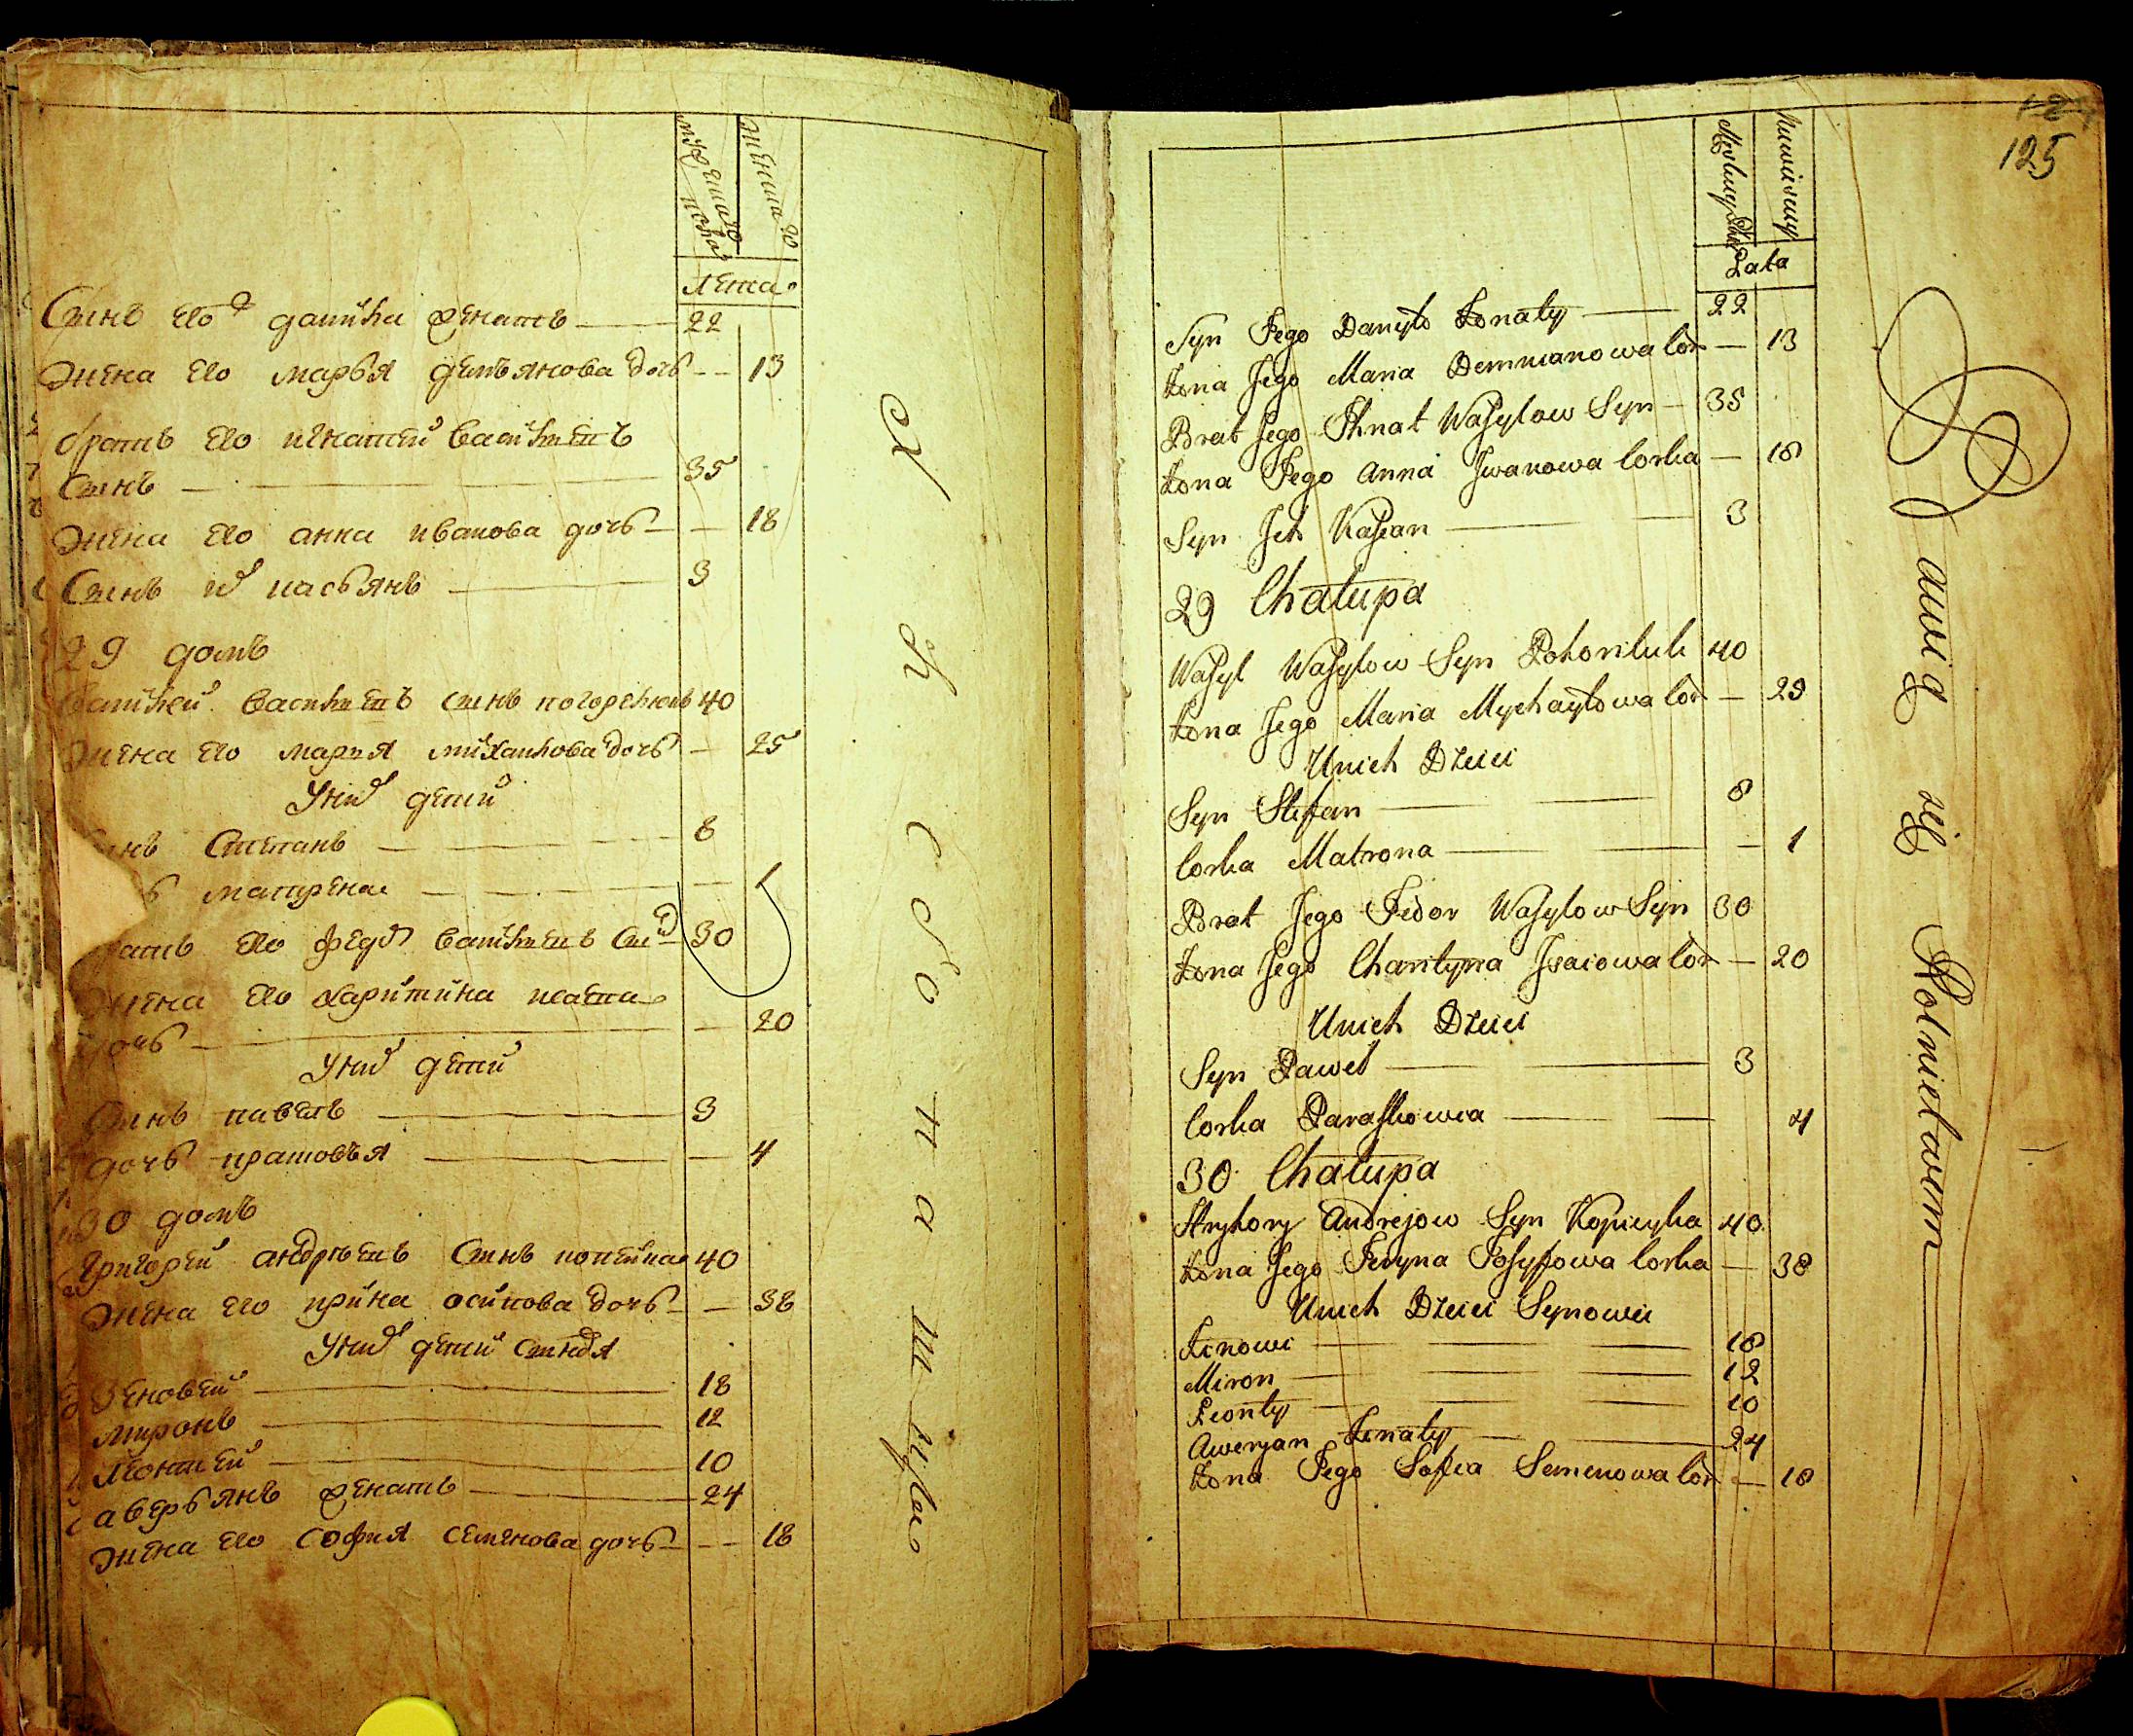 мужеска
женска
лета
Синъ его данила женатъ 22
жена его марья демьянова дочь 13
братъ его игнатей василевъ
Синъ 35
жена его анна иванова дочь 18
Синъ их касьянъ 3
29 домъ
василей василевъ синъ погорелюкъ 40
жена его марья михаилова дочь 25
У них дети
Степанъ 8
матрена 1
его федор василевъ 30
жена его харитина исаева
дочь 20
У них дети
Синъ павелъ 3
дочь прасковья 4
30 домъ
Григорей андреевъ Синъ копейка 40
жена его ирина осипова дочь 38
У них дети
Зеновей 18
миронъ 12
леонтей 10
аверьянъ женатъ 24
жена его София семенова дочь 18
125
Lata
Syn Jego Danyło Żonaty 22
Żona Jego Maria Demianowa Cor 13
Brat Jego Ihnat Wasylow Syn 35
Żona Jego Anna Iwanowa Corka 18
Syn Ich Kasian 3
29 Chałupa
Wasyl Wasylow Syn Pohoriluk 40
Żona Jego Maria Mychayłowa Cor 25
U nich Dzieci
Syn Stefan 8
Corka Matrona 1
Brat Jego Fedor Wasylow Syn 30
Żona Jego Charityna Isaiowa Cor 20
U nich Dzieci
Syn Paweł 3
Corka Paraskowia 4
30 Chałupa
Hryhory Andrejow Syn Kopieyka 40
Żona Jego Iryna Josypowa Corka 38
U nich Dzieci Synowie
Zenowi 18
Miron 12
Leonty 10
Aweryan Żonaty 24
Żona Jego Sofia Semenowa Cor 18